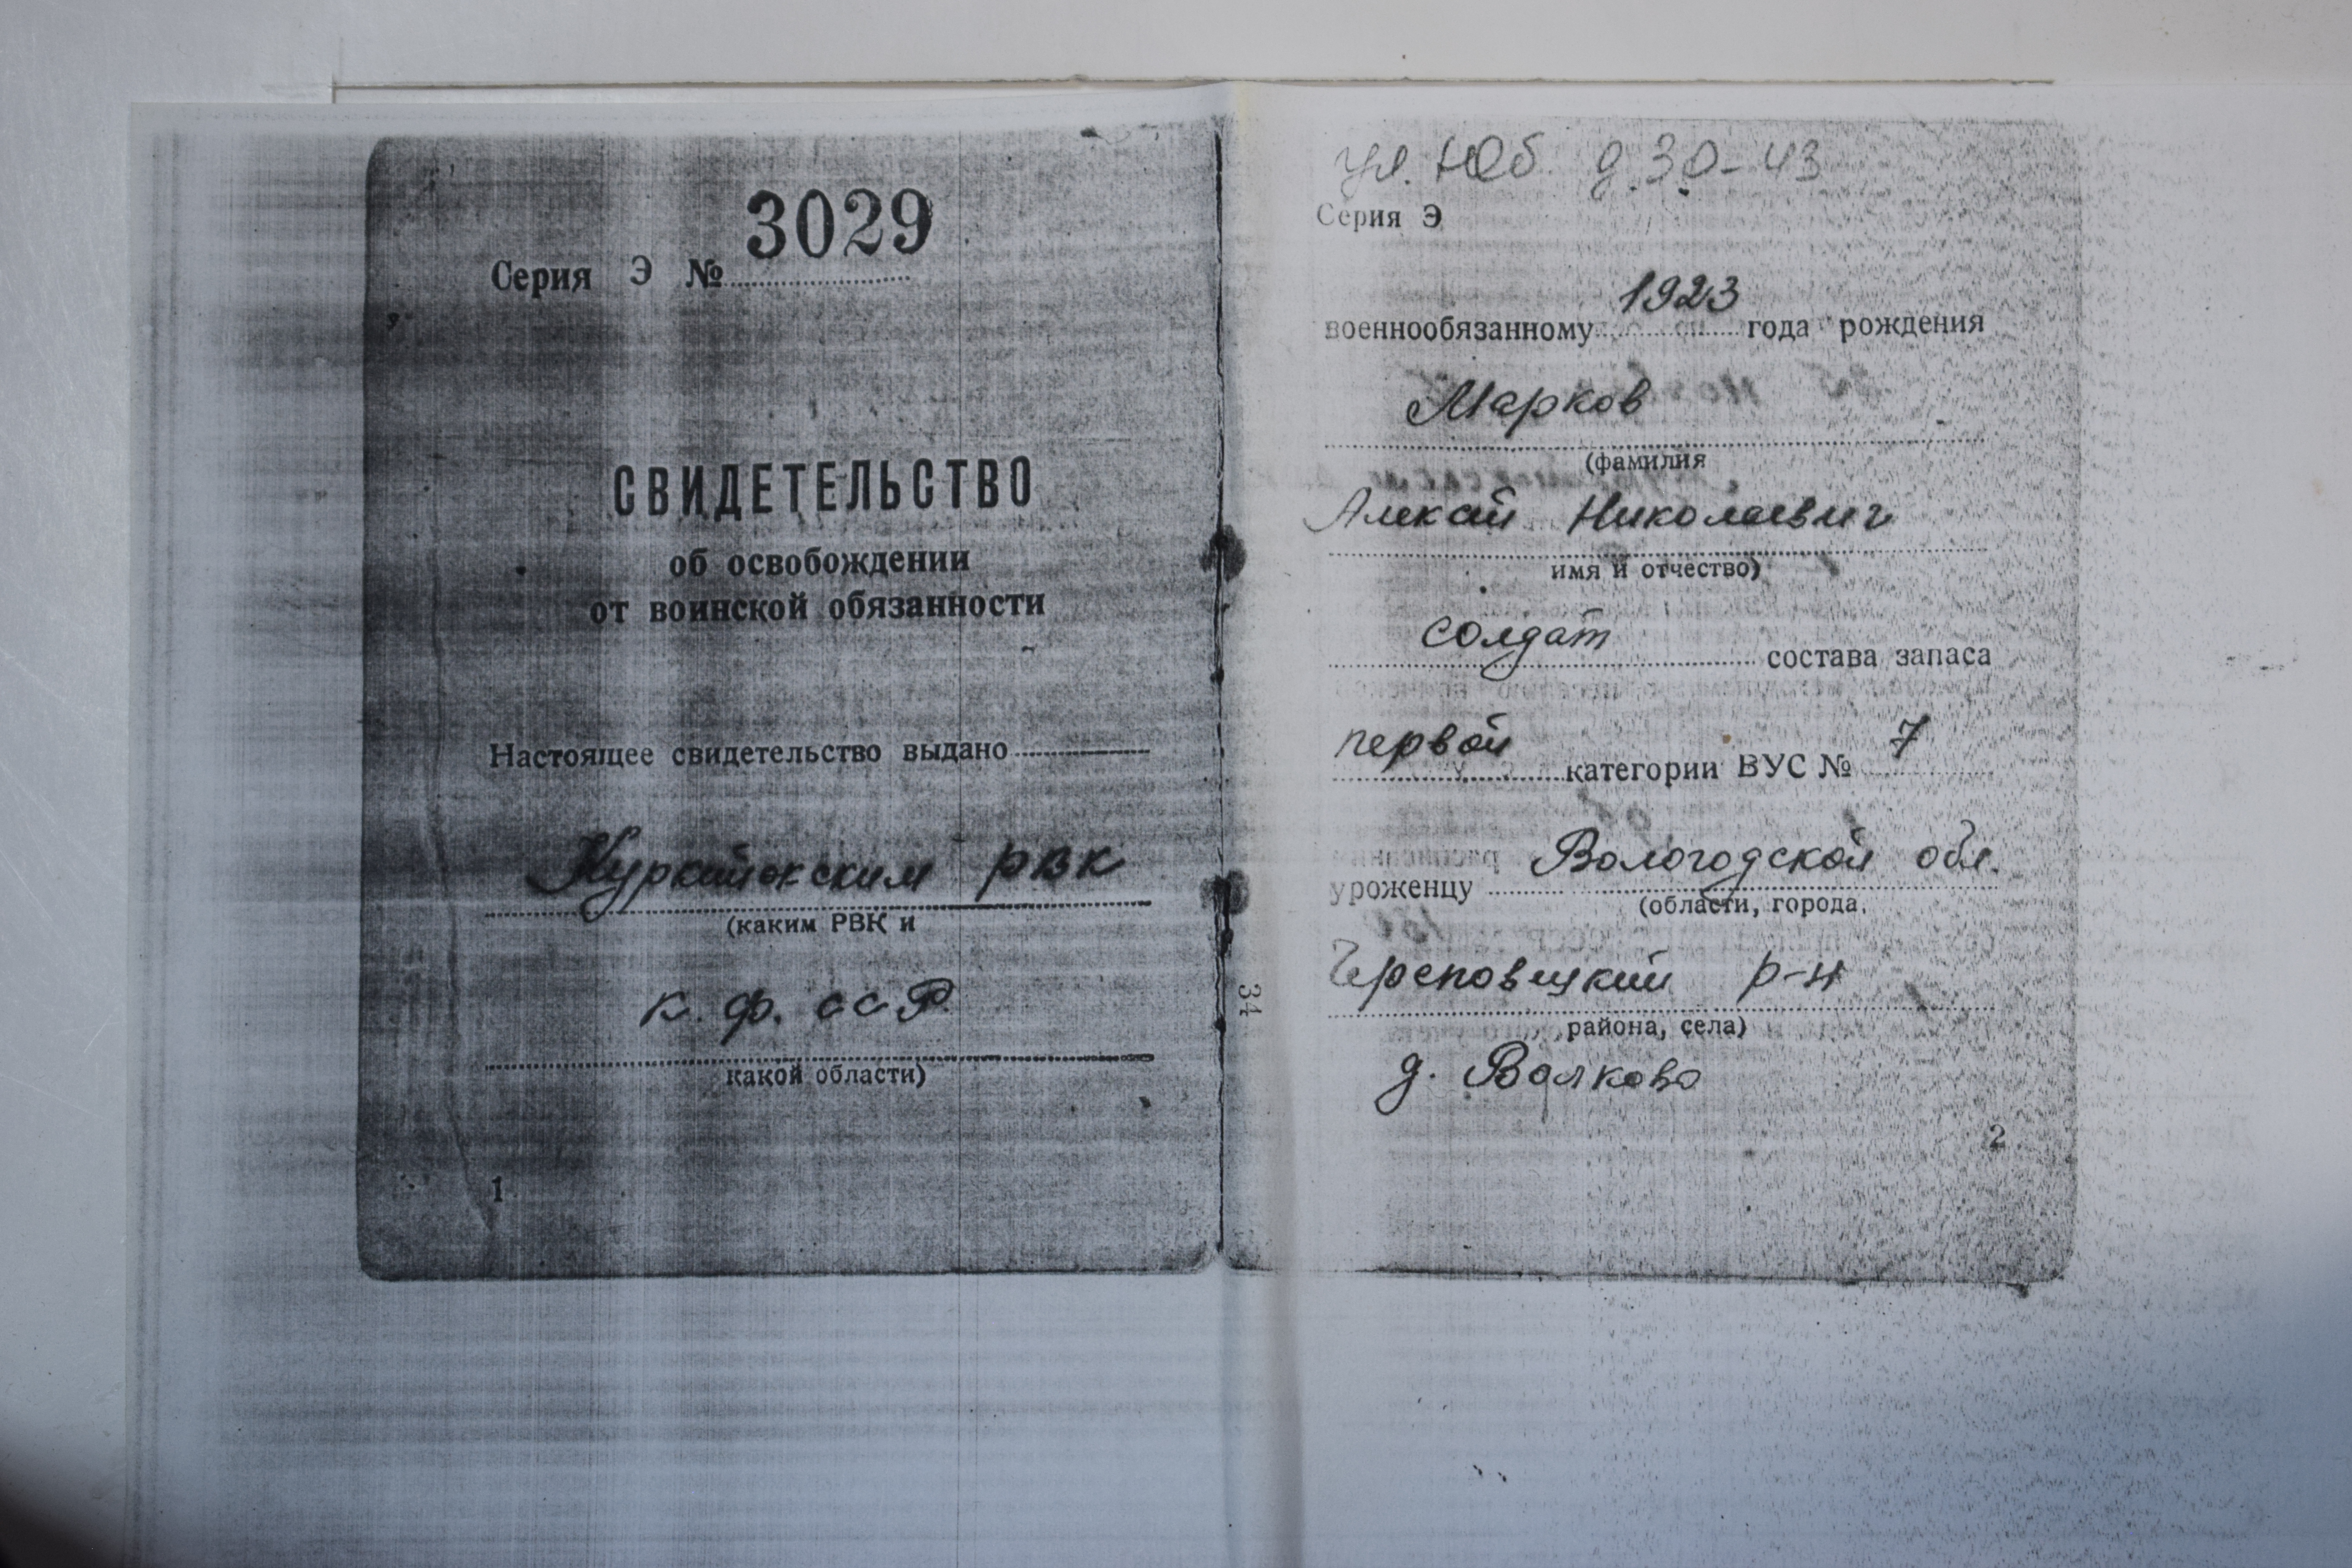 3029
Серия Э №
СВИДЕТЕЛЬСТВО
об освобождении
от воинской обязанности
Настоящее свидетельство выдано
Куркийокским РВК
(каким РВК и
К. Ф. ССР
какой области)
1
ул. Юб. д. 30-43
Серия Э
1923
военнообязанному года рождения
Марков
(фамилия
Алексей Николаевич
имя и отчество)
солдат
состава запаса
первой 7
категории ВУС №
Вологодской обл.
уроженцу
(области, города,
Череповецкий р-н
района, села)
д. Волково
2
34